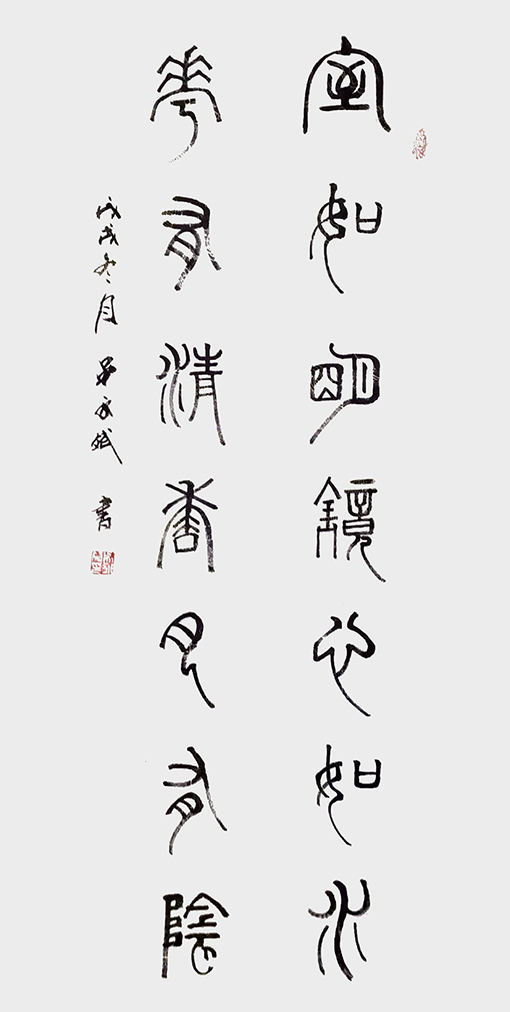 室如明鏡心如水
華有清香月有陰
戊戌冬月 書